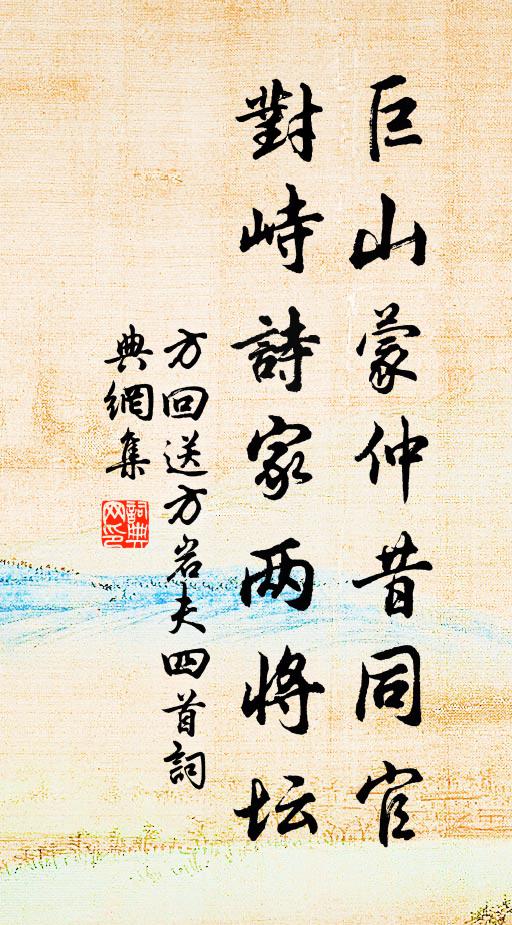 巨山蒙仲昔同官
對峙詩家两將坛
方回送方岩夫四首詞
典網集
詞典网印